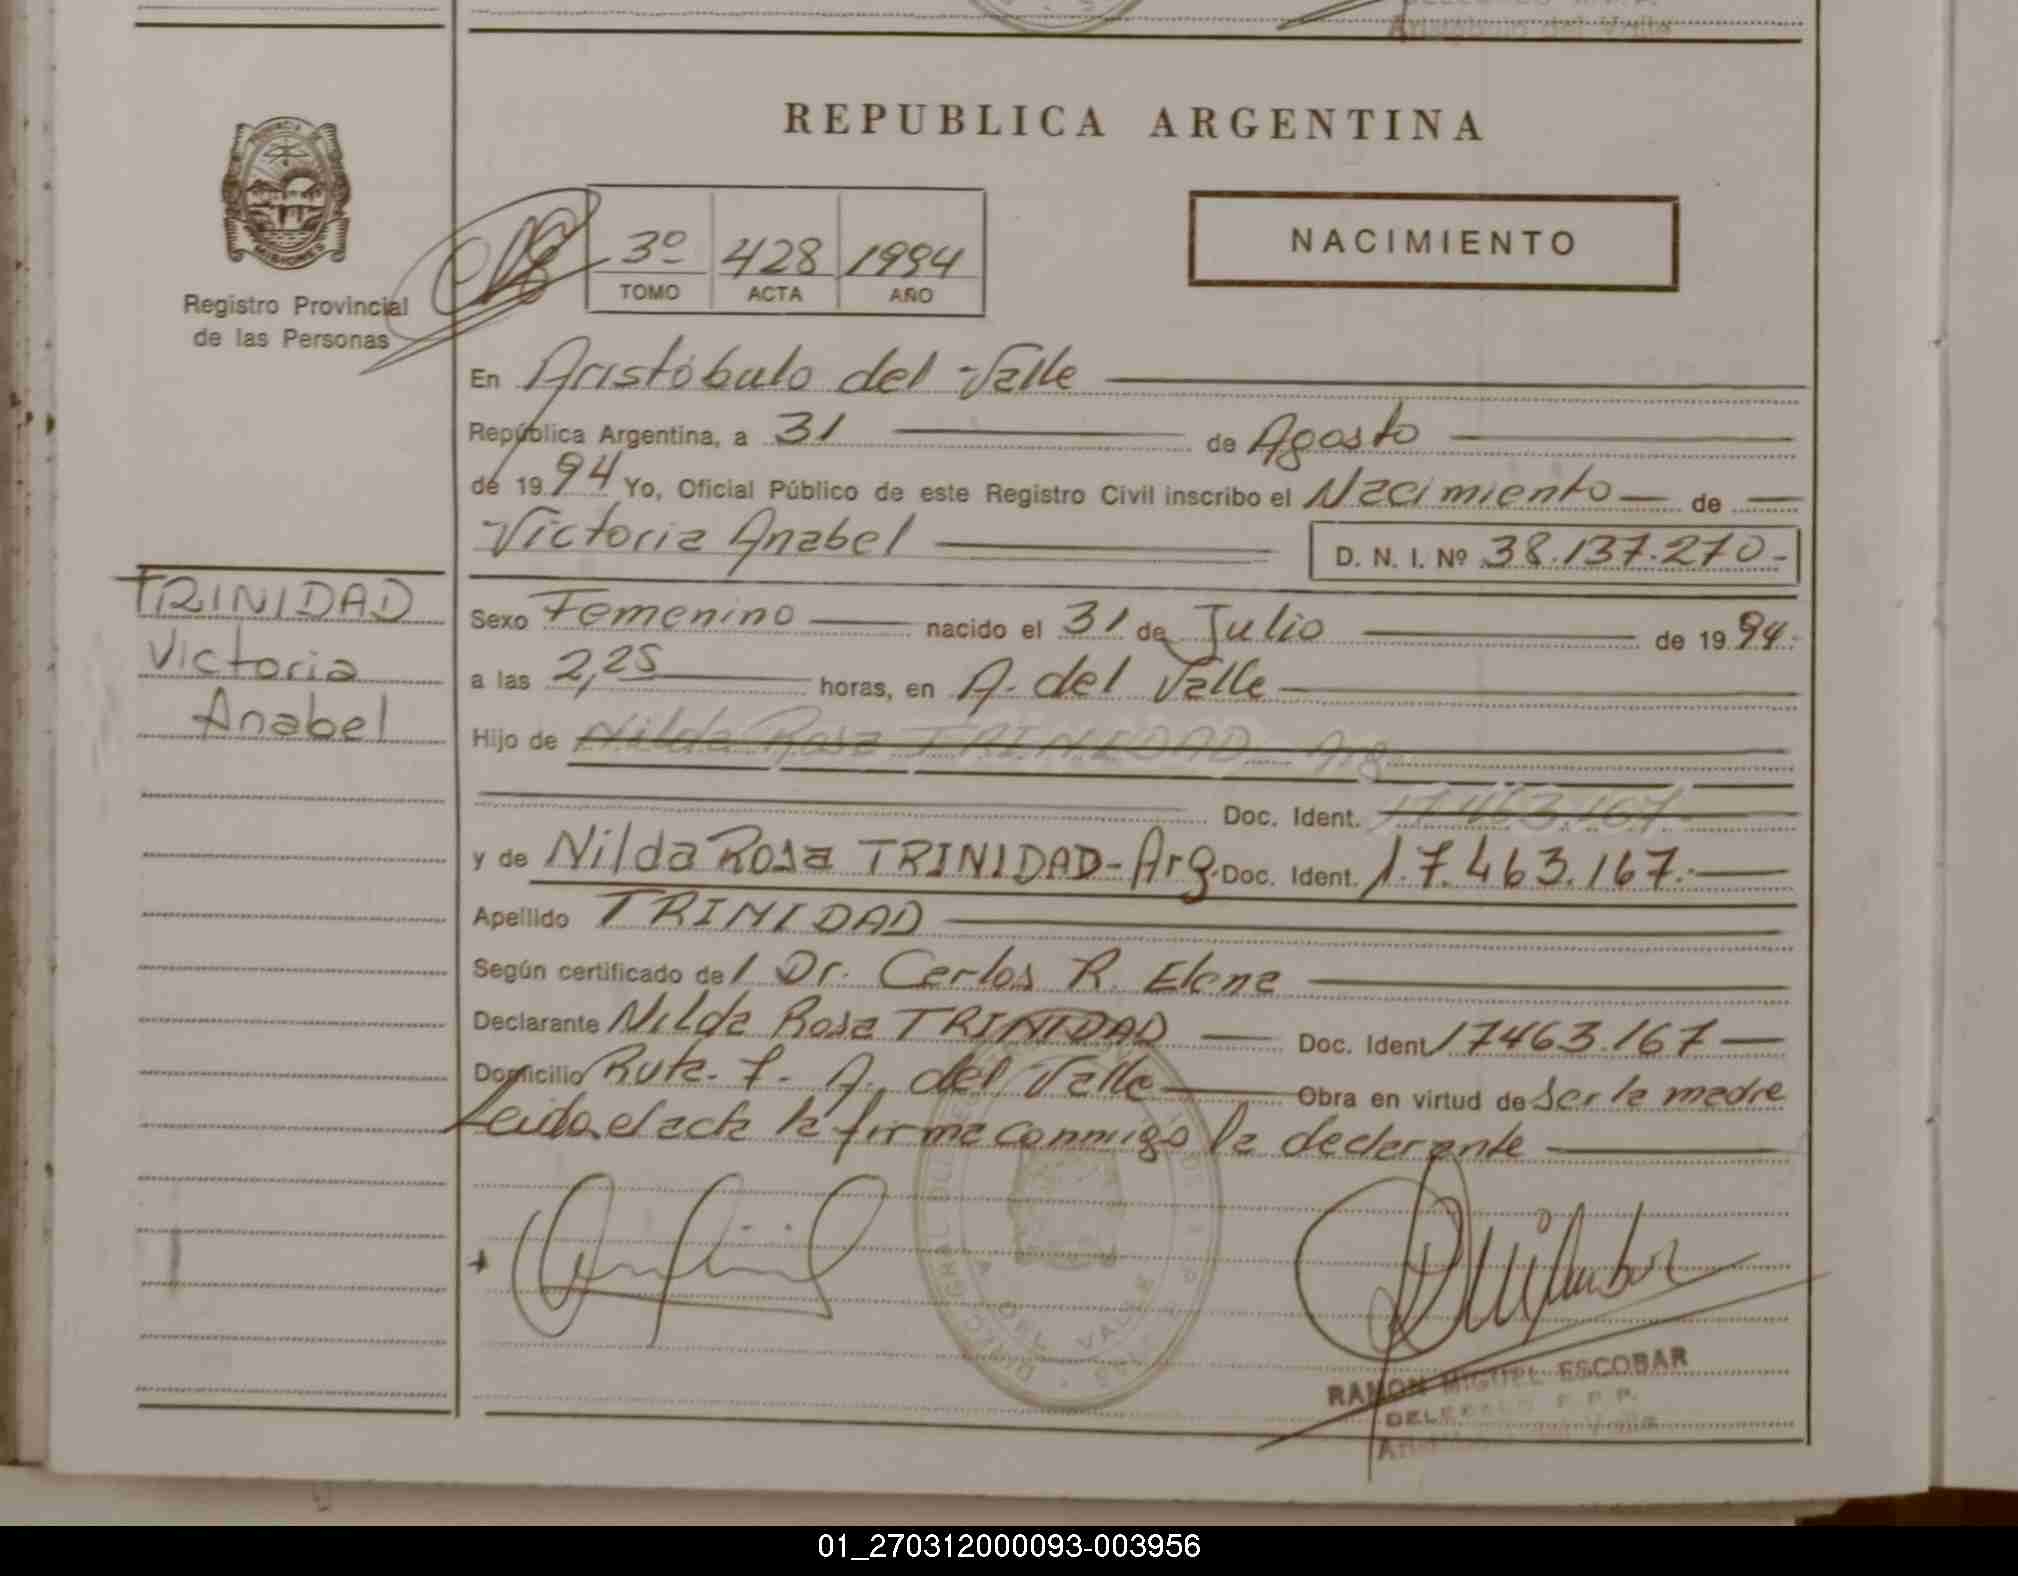 Aristóbulo del Valle
REPUBLICA ARGENTINA
PROVINCIA DE
MISIONES
Registro Provincial
de las Personas
3º 428 1994
TOMO ACTA AÑO
NACIMIENTO
En Aristóbulo del Valle
República Argentina, a 31 de Agosto
de 1994 Yo, Oficial Público de este Registro Civil inscribo el Nacimiento de
Victoria Anabel D. N. I. Nº 38.137.270-
TRINIDAD
Victoria
Anabel
Sexo Femenino nacido el 31 de Julio de 1994.
a las 2,25 horas, en A. del Valle
Hijo de Nilda Rosa TRINIDAD Arg.
Doc. Ident. 17.463.167.
y de Nilda Rosa TRINIDAD-Arg. Doc. Ident. 17.463.167.-
Apellido TRINIDAD
Según certificado del Dr. Carlos R. Elena
Declarante Nilda Rosa TRINIDAD Doc. Ident 17463.167
Domicilio Ruta. 7. A. del Valle Obra en virtud de ser la madre
Leida el acta la firma conmigo la declarante
DEL VALLE
RAMON MIGUEL ESCOBAR
DELEGADO R.P.P.
01_270312000093-003956